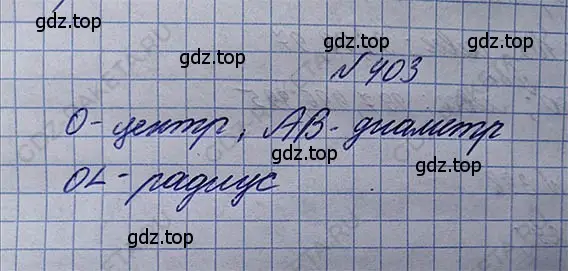 gdz.top gdz.top
№ 403
gdz.top
O - центр, AB - диаметр
gdz.top
OL - радиус
gdz.top
gdz.top gdz.top